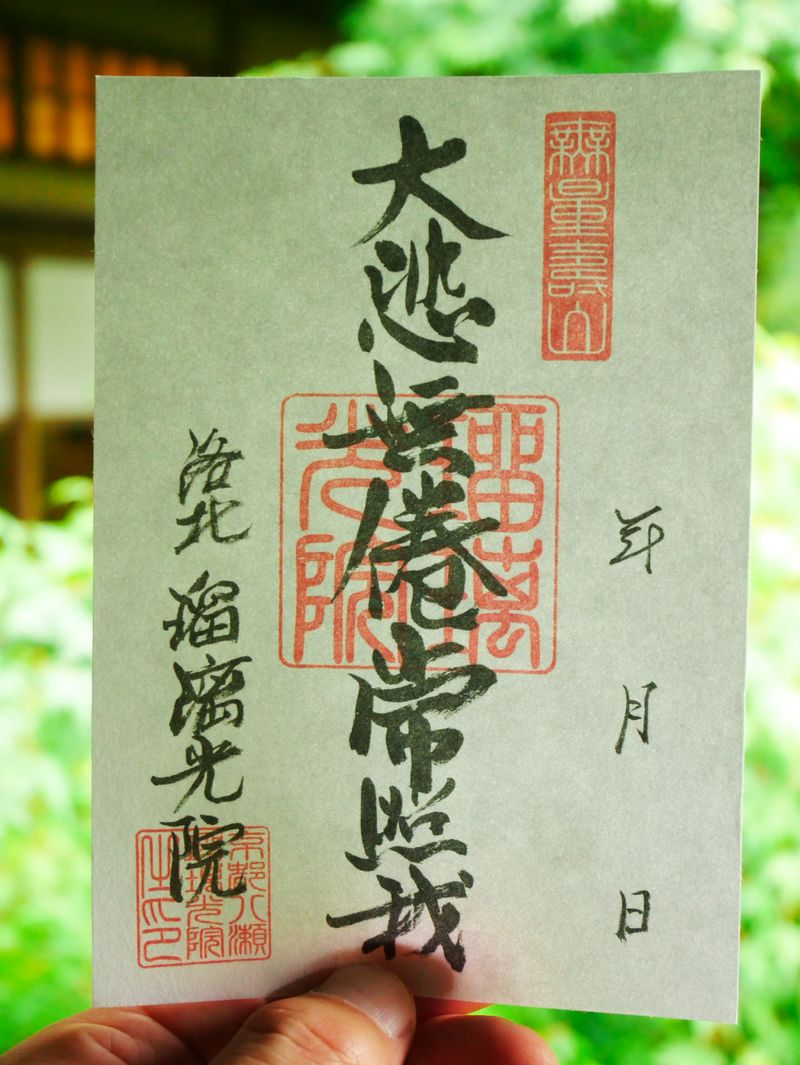 無量壽山
年 月 日
大悲無倦常照我
瑠璃光院
洛北 瑠璃光院
京都八瀬